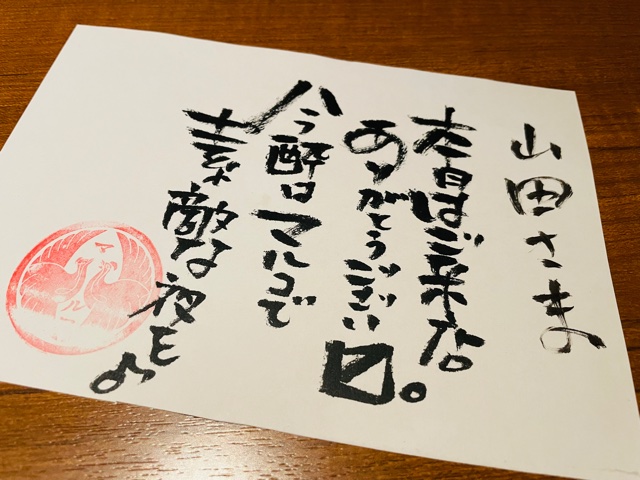 山田さま
本日はご来店
ありがとうござい〼。
今酔はマルコで
素敵な夜を♪